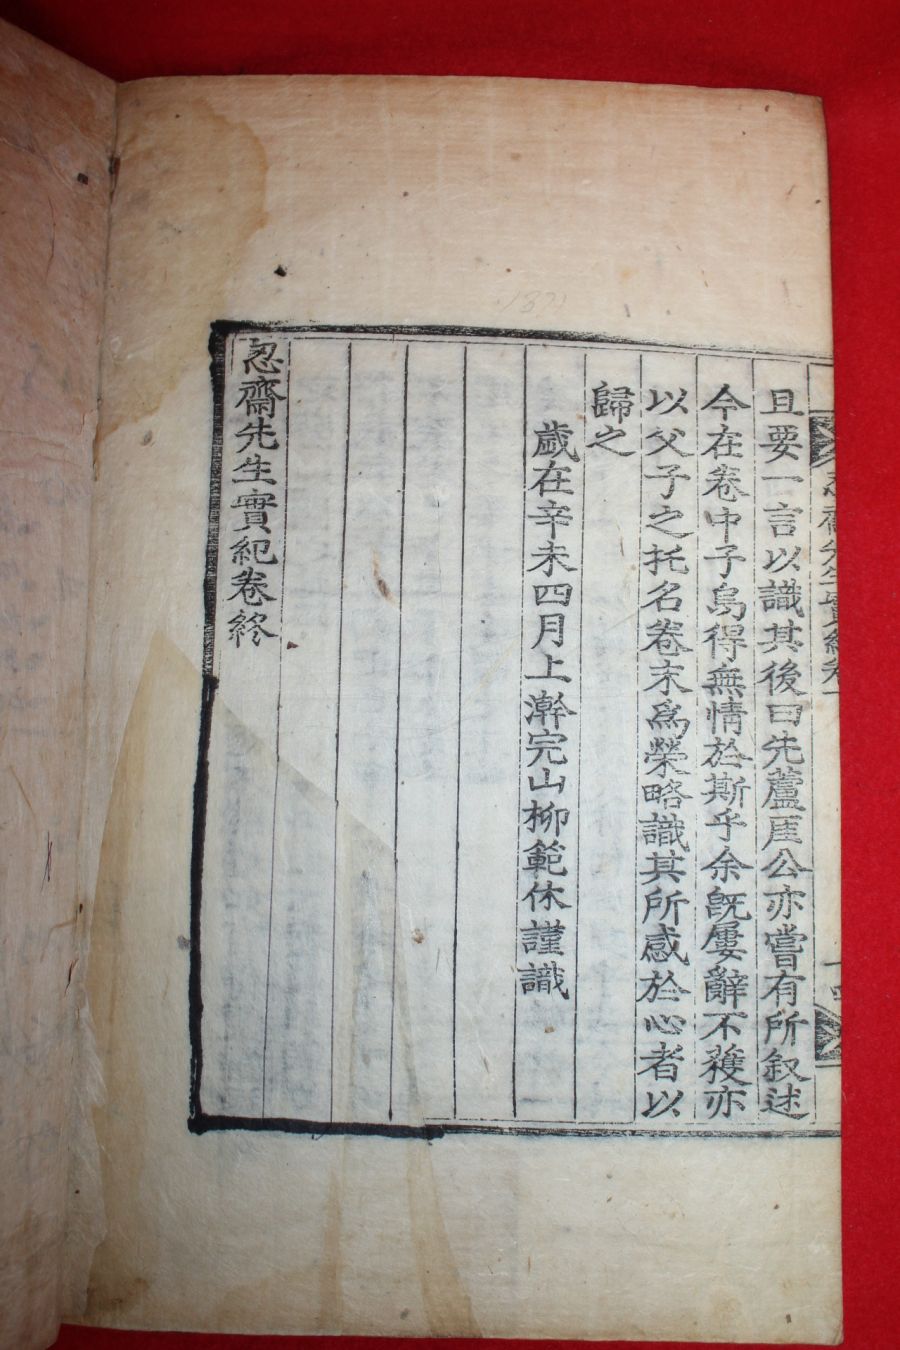 且要一言以識其後曰先蘆厓公亦嘗有所叙述
今在卷中子烏得無情於斯乎余旣屢辭不獲亦
以父子之托名卷末爲榮略識其所感於心者以
歸之
歲在辛未四月上澣完山柳範休謹識
忍齋先生實紀卷終
齋先生實紀卷
1871